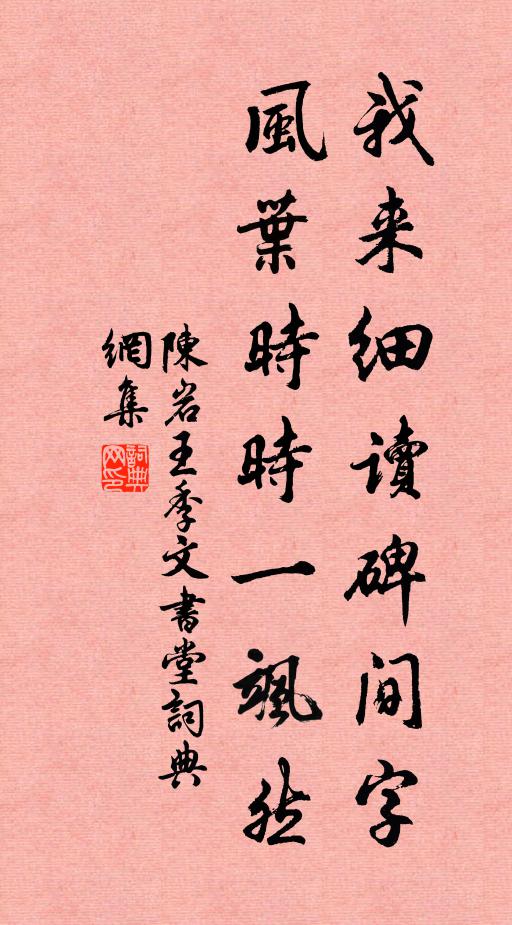 我来细讀碑间字
風葉時時一颯然
陳岩王季文書堂詞典
網集
詞典
网印